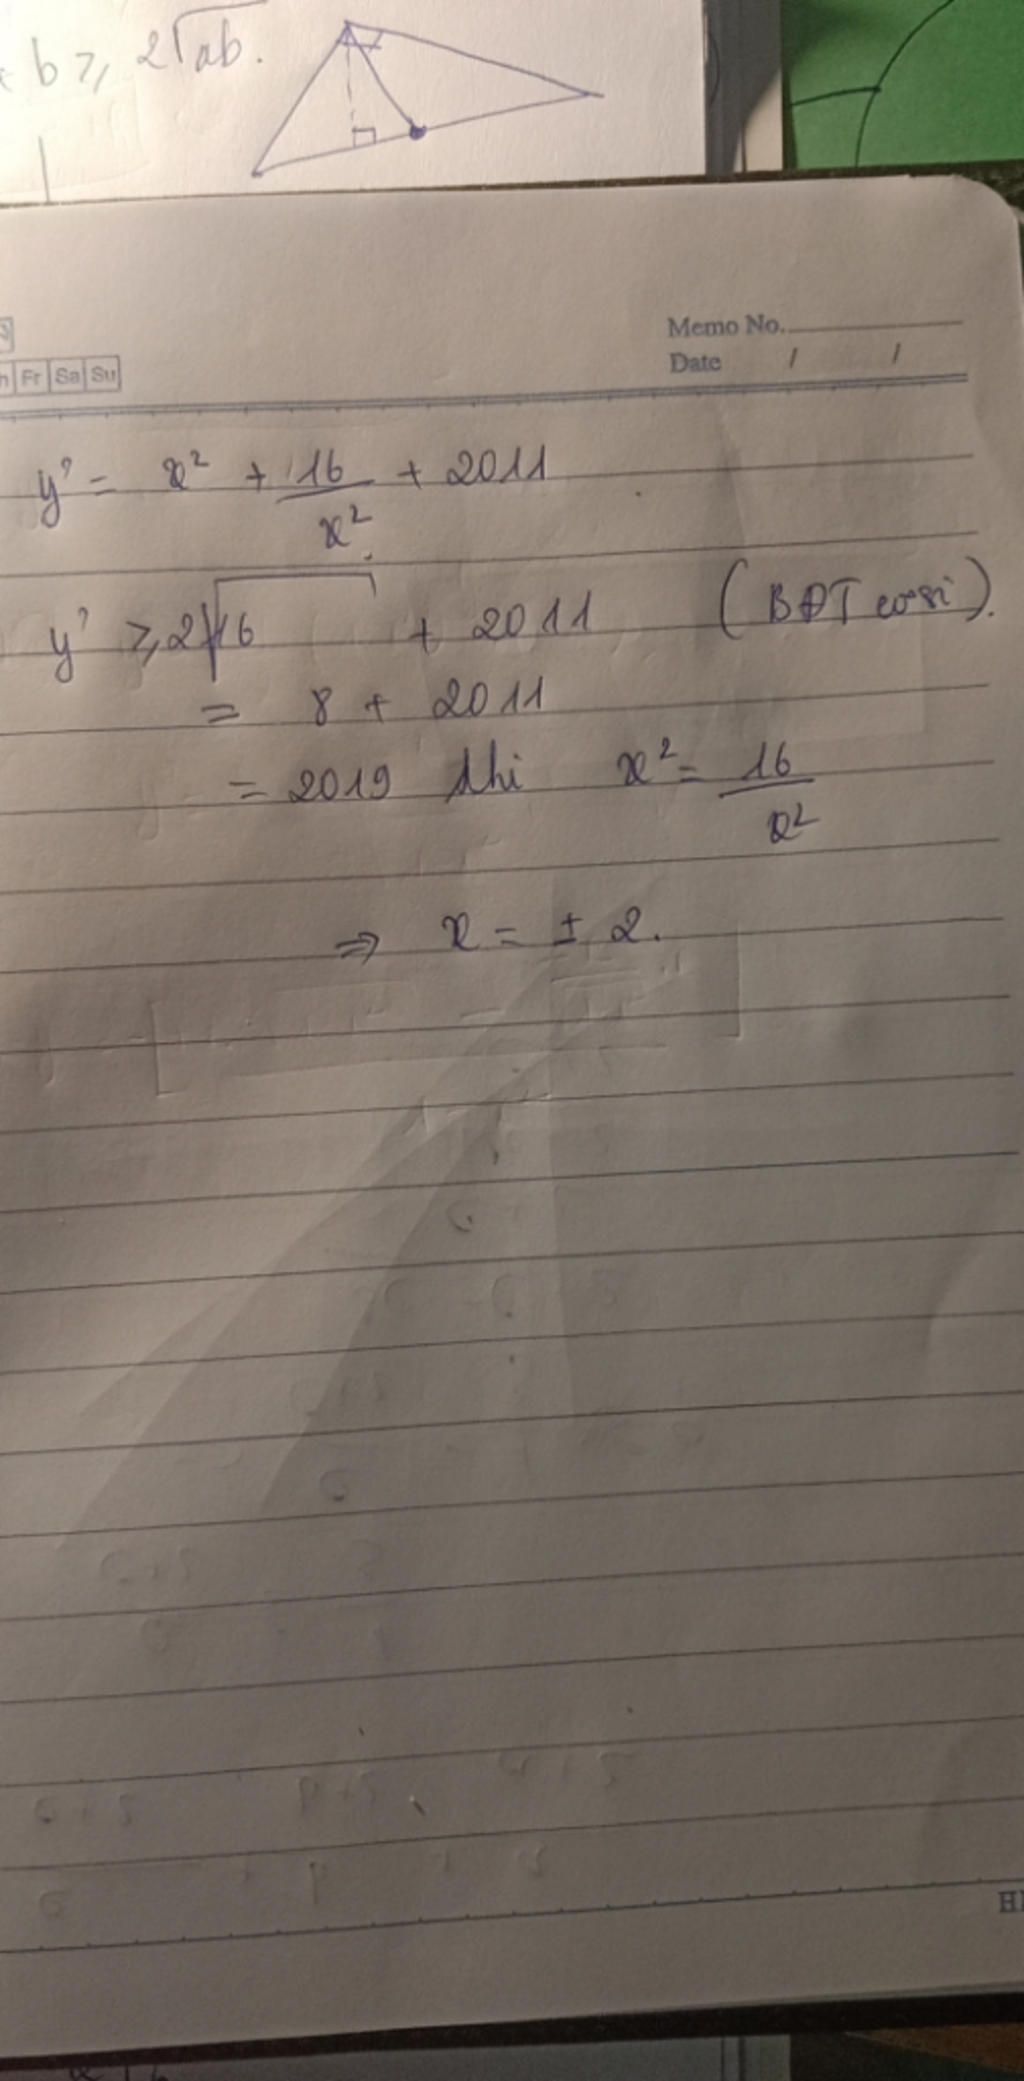 b ≥ 2√ab.
Memo No.
Date / /
Fr Sa Su
y' = x² + 16/x² + 2011
y' ≥ 2√16 + 2011 (BĐT cosi).
= 8 + 2011
= 2019 khi x² = 16/x²
⇒ x = ± 2.